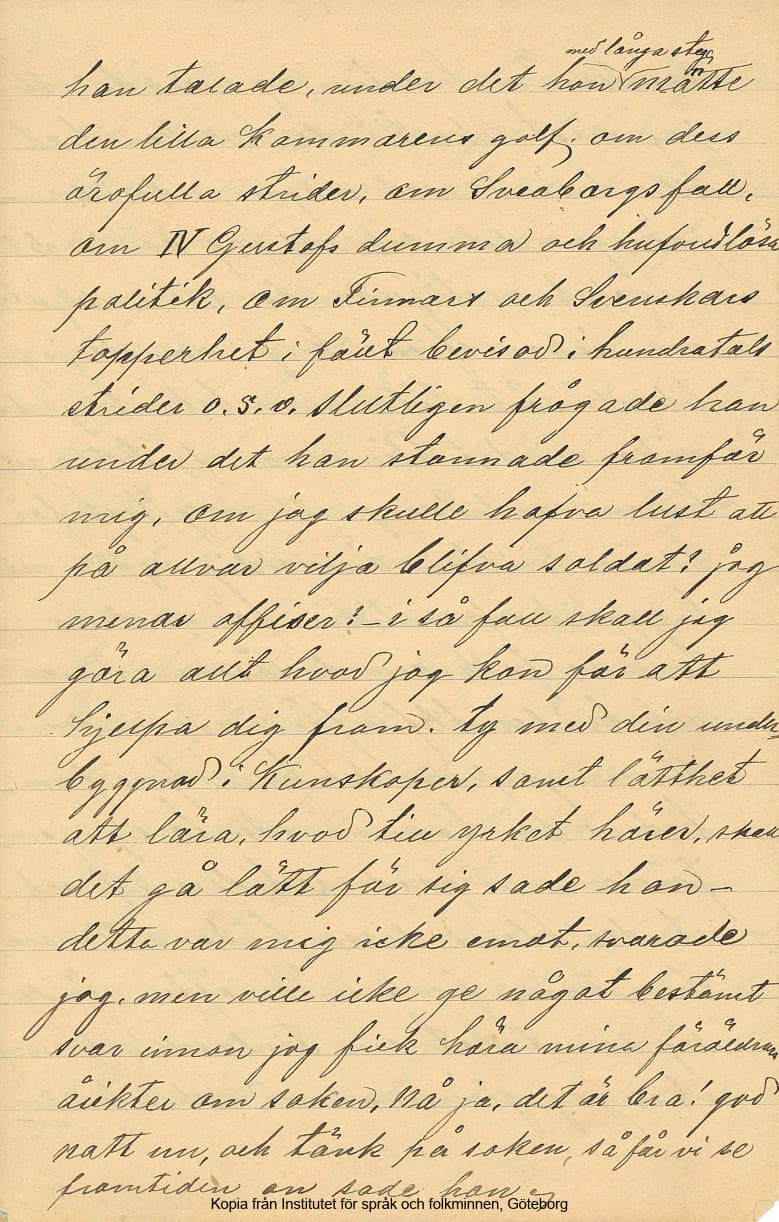 med långa steg
han talade, under det han mätte
den lilla kammarens golf, om dess
ärofulla strider, om Sveaborgs fall,
om IV Gustafs dumma och hufvudlösa
politik, om Finnars och Svenskars
tapperhet i fält bevisad i hundratals
strider o.s.v. Slutligen frågade han
under det han stannade framför
mig, om jag skulle hafva lust att
på allvar vilja blifva soldat? jag
menar officer? – i så fall skall jag
göra allt hvad jag kan för att
hjelpa dig fram. ty med din under-
byggnad i kunskaper, samt lätthet
att lära, hvad till yrket hörer, skall
det gå lätt för sig sade han –
detta var mig icke emot, svarade
jag, men ville icke ge något bestämt
svar innan jag fick höra mina föräldrars
åsikter om saken, Nå ja, det är bra! god
natt nu, och tänk på saken, så får vi se
framtiden an sade han,
Kopia från Institutet för språk och folkminnen, Göteborg